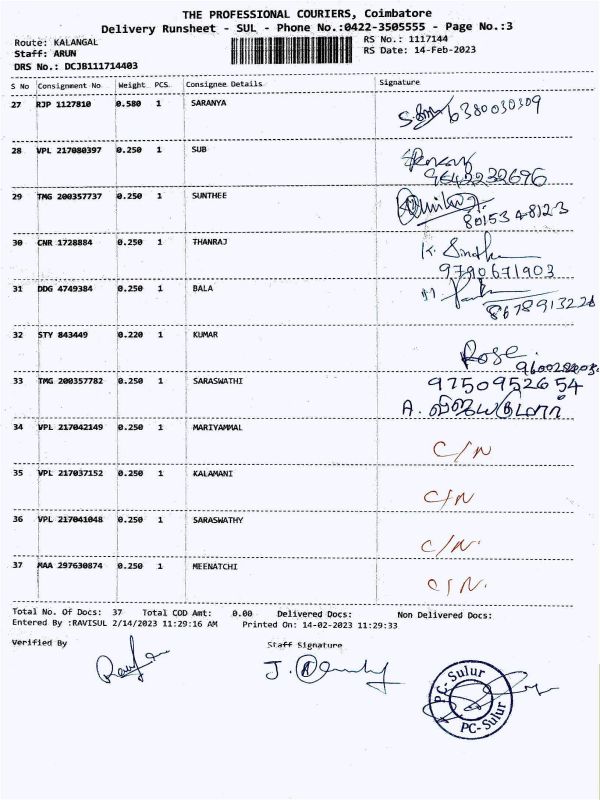 THE PROFESSIONAL COURIERS, Coimbatore
Delivery Runsheet - SUL - Phone No.:0422-3505555 - Page No.:3
Route: KALANGAL RS No.: 1117144
Staff: ARUN RS Date: 14-Feb-2023
DRS No.: DCJB111714403
S No Consignment No Weight PCS Consignee Details Signature
27 RJP 1127810 0.580 1 SARANYA 6380030309
28 VPL 217080397 0.250 1 SUB
29 TMG 200357737 0.250 1 SUNTHEE
30 CNR 1728884 0.250 1 THANRAJ K. Sindhu
9790671903
31 DDG 4749384 0.250 1 BALA
32 STY 843449 0.220 1 KUMAR Rose.
33 TMG 200357782 0.250 1 SARASWATHI 9750952654
A. விஜயகுமார்
34 VPL 217042149 0.250 1 MARIYAMMAL C/N
35 VPL 217037152 0.250 1 KALAMANI C/N
36 VPL 217041048 0.250 1 SARASWATHY C/N.
37 MAA 297630874 0.250 1 MEENATCHI C/N.
Total No. Of Docs: 37 Total COD Amt: 0.00 Delivered Docs: Non Delivered Docs:
Entered By :RAVISUL 2/14/2023 11:29:16 AM Printed On: 14-02-2023 11:29:33
Verified By Staff Signature
PC-Sulur
PC-Sulur